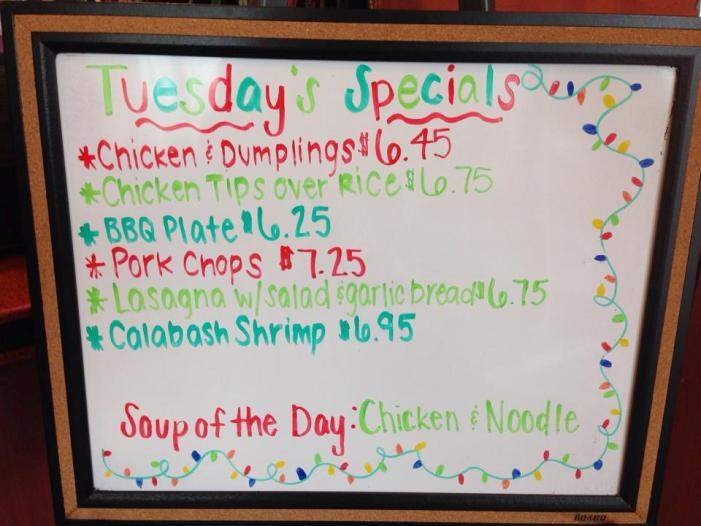 Tuesday's Specials
*Chicken & Dumplings $6.45
*Chicken Tips over Rice $6.75
*BBQ Plate $6.25
*Pork Chops $7.25
*Lasagna w/salad & garlic bread $6.75
*Calabash Shrimp $6.95
Soup of the Day: Chicken & Noodle